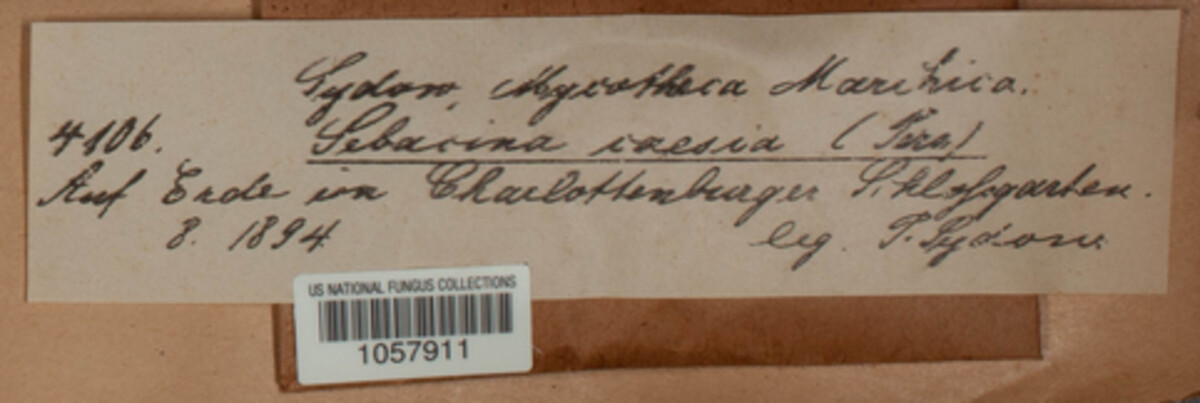 Sydow, Mycotheca Marchica.
4106. Sebacina caesia (Pers.)
Auf Erde im Charlottenburger Schlossgarten.
8. 1894. leg. P. Sydow.
US NATIONAL FUNGUS COLLECTIONS
1057911